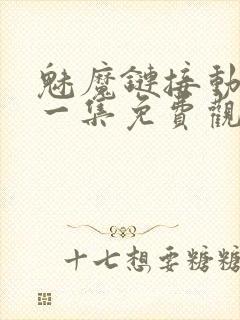 魅魔鏈接動
一集免費觀
十七想要糖糖